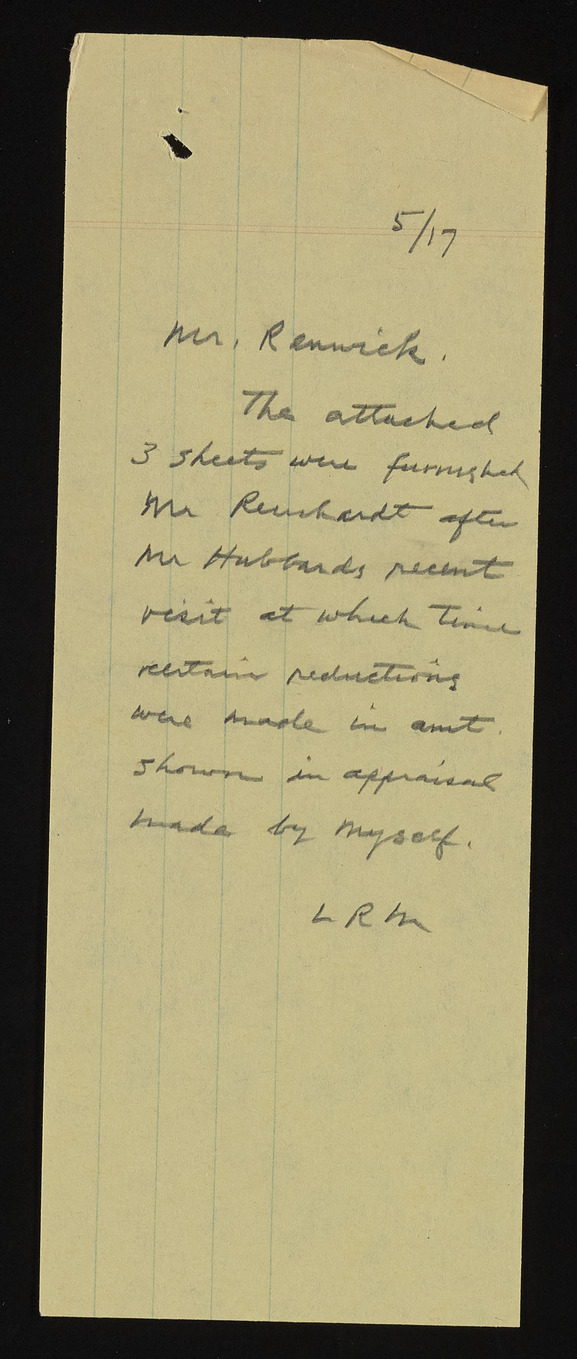 5/17
Mr. Renwick.
The attached
3 sheets were furnished
Mr Reinhardt after
Mr Hubbards recent
visit at which time
certain reductions
were made in amt.
shown in appraisal
made by myself.
L R M